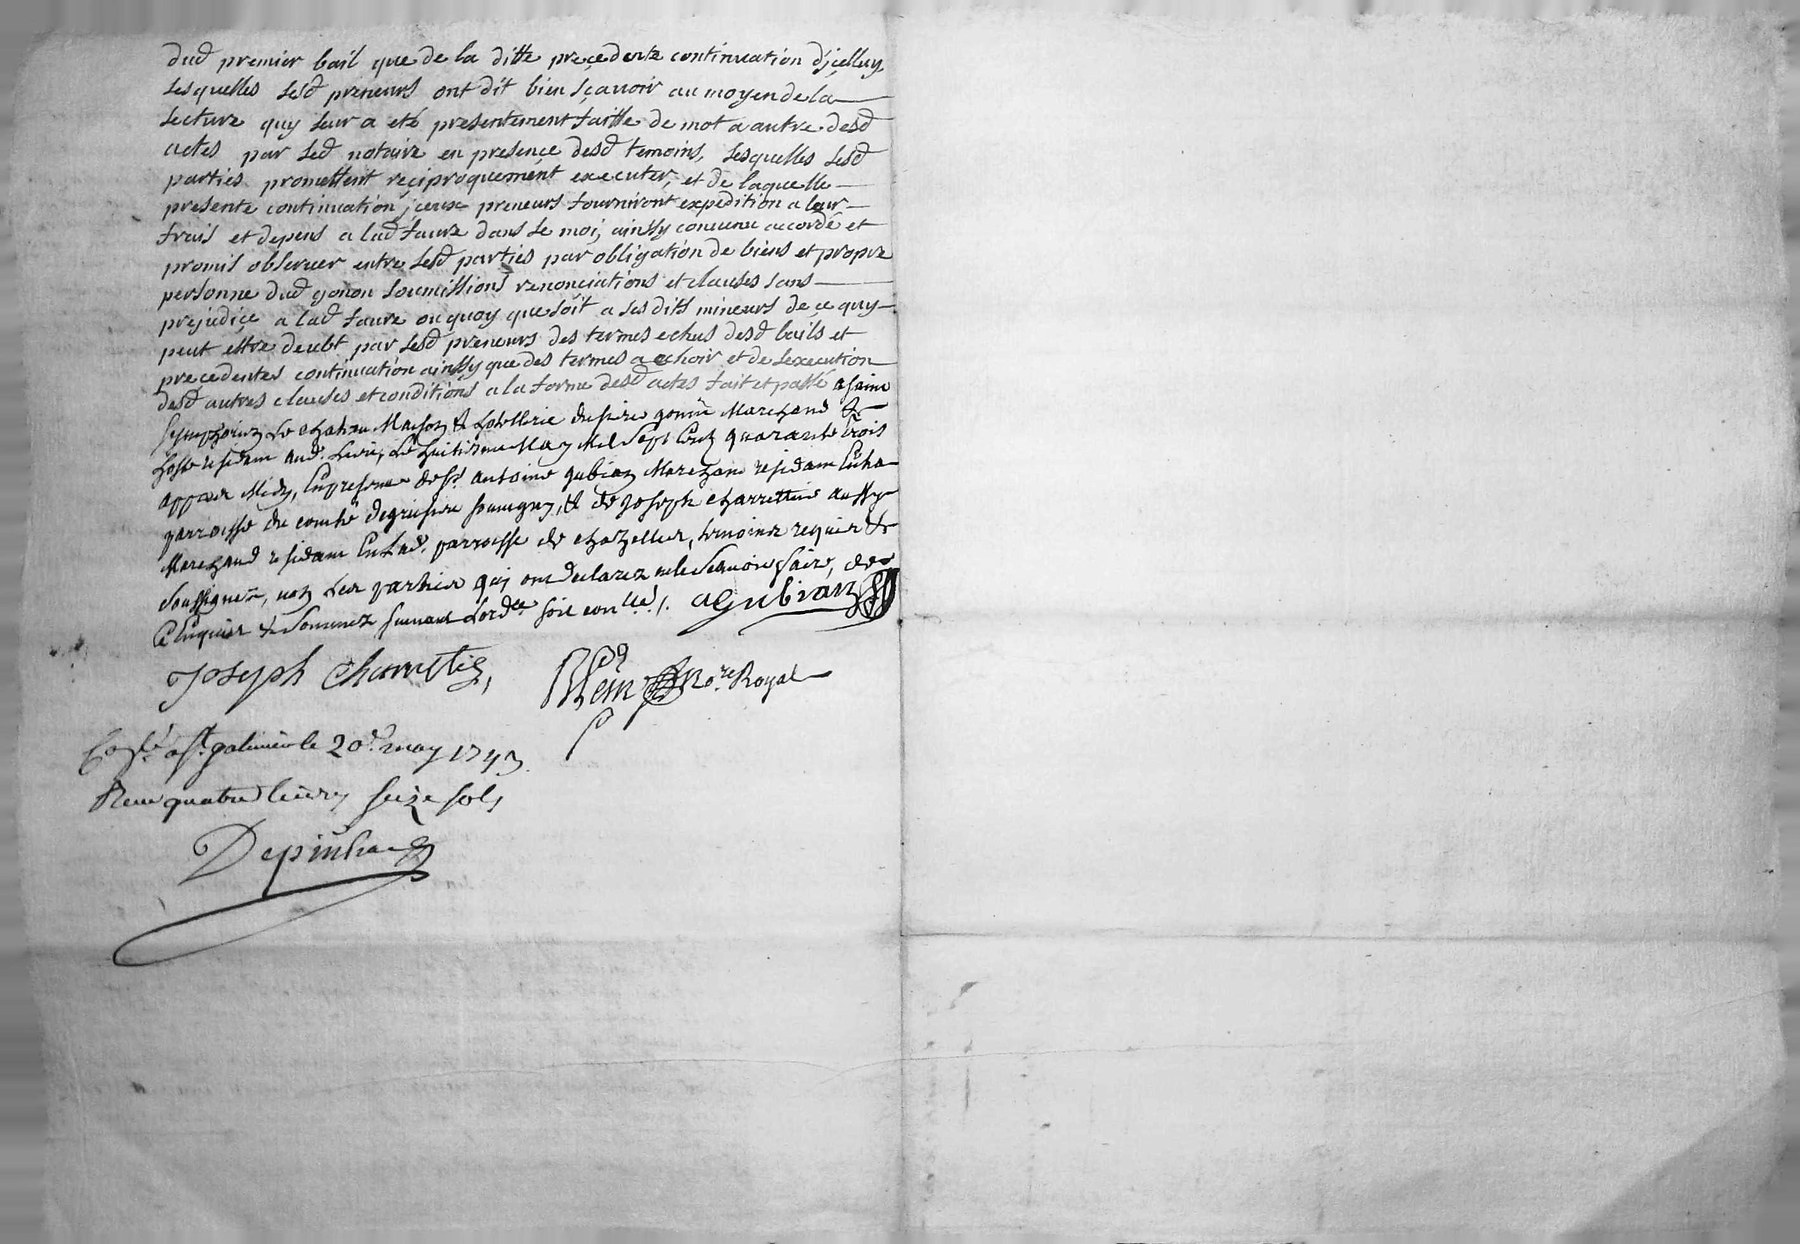 dud premier bail que de la ditte precedente continuation d'jcelluy
lesquelles lesd preneurs ont dit bien sçavoir au moyen de la
lecture quy leur a eté presentement faitte de mot a autre desd
actes par led notaire en presence desd temoins, lesquelles lesd
parties promettent reciproquement executer, et de laquelle
presente continuation jceux preneurs fourniront expedition a leur
frais et depens a lad faure dans le moi, ainsy convenu accordé et
promis observer entre lesd parties par obligation de biens et propre
personne dud gonon soumissions renonciations et clauses sans
prejudice a lad faure ou quoy que soit a ses dits mineurs de ce quy
peut estre deubt par lesd preneurs des termes echus desd bails et
precedentes continuation ainsy que des termes a echoir et de l'execution
desd autres clauses et conditions a la forme desd actes fait et passé a saint
Simphorien le chateau Maison & hotellerie du sire Marchand &
hoste residant aud. Lieu, Le huitieme May Mil Sept Cent quarante trois
appres Midy, En presence de sr. antoine gubian Marchand residant
parroisse du & de Joseph charrettier aussy
Marchand residant parroisse de chazelles, temoins requis &
soussignez, non Les parties quj ont declarez ne le scavoir faire, de
ce Enquis & sommez suivant Lordce soit conlle. /. agubian
Joseph Charretier, No.re Royal
a st. galmier le 20e. may 1743
Receu quatre livres seize sols